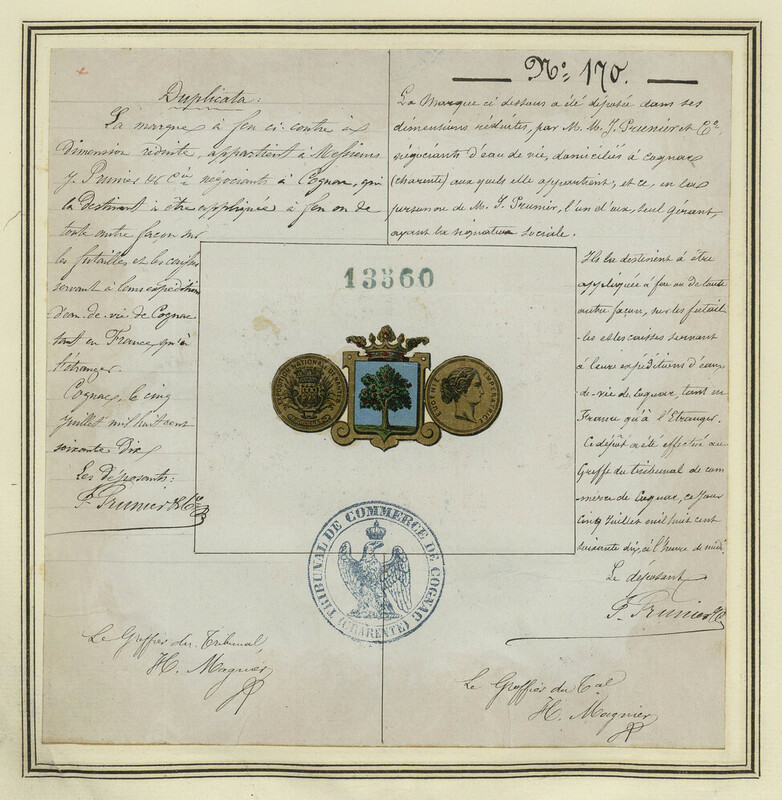 Duplicata:
La marque à feu ci-contre à
dimension réduite, appartient à Messieurs
J. Prunier & Cie négociants à Cognac, qui
la destinent à être appliquée à feu ou de
toute autre façon sur
les futailles et les caisses
servant à leurs expéditions
d'eau-de-vie de Cognac
tant en France, qu'à
l'étranger.
Cognac, le cinq
Juillet mil huit cent
soixante dix
Les Déposants:
J. Prunier & Cie
Le Greffier du Tribunal,
H. Magnier
No 170.
La Marque ci dessous a été déposée dans ses
dimentions réduites, par M. M. J. Prunier et Cie
négociants d'eau de vie, domiciliés à Cognac
(charente) aux quels elle appartient, et ce, en la
personne de M. J. Prunier, l'un d'eux, seul gérant,
ayant la signature sociale.
Ils la destinent à être
appliquée à feu ou de toute
autre façon, sur les futail-
les et les caisses servant
à leurs expéditions d'eaux-
de-vie de Cognac, tant en
France qu'à l'Etranger.
Ce dépôt a été effectué au
Greffe du tribunal de com-
merce de Cognac, ce jour
Cinq Juillet mil huit cent
soixante dix, à l'heure de midi
Le déposant
J. Prunier & Co
Le Greffier du Tal
H. Magnier
13560
EUGENIE IMPERATRICE
TRIBUNAL DE COMMERCE DE COGNAC
(CHARENTE)